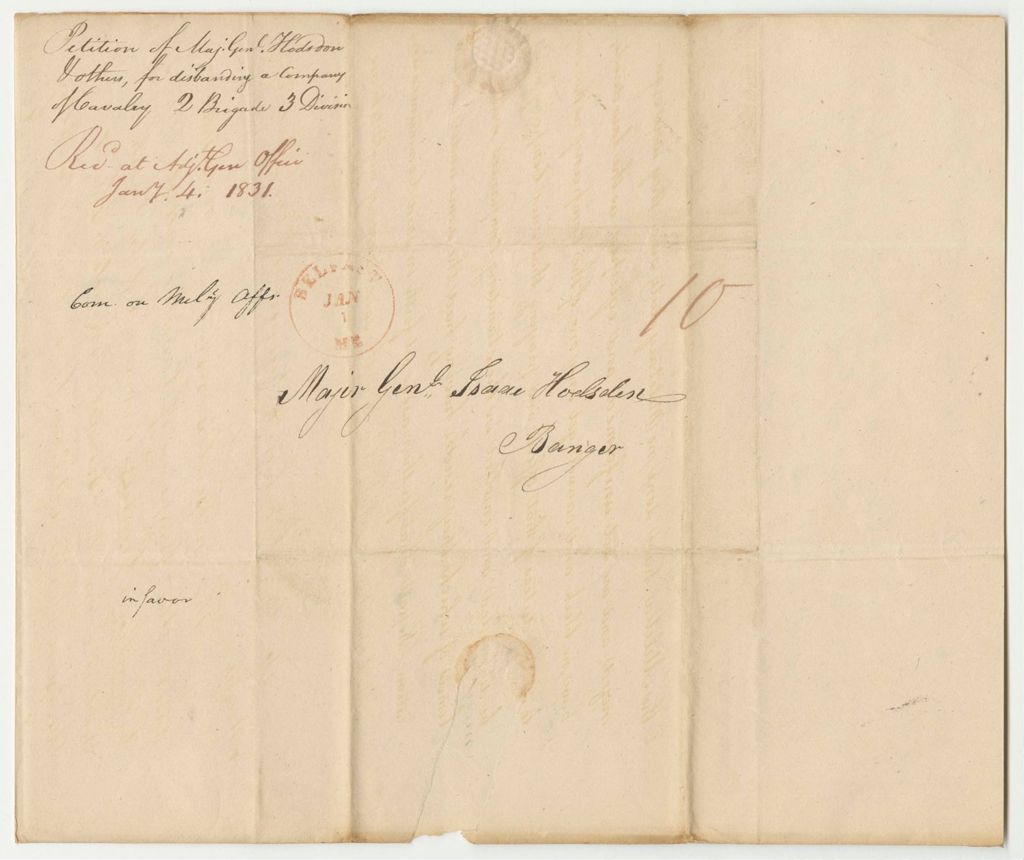 Petition of Maj. Genl. Hodsdon
& others, for disbanding a Company
of Cavalry 2 Brigade 3 Division
Recd. at Adjt. Gen Office
Jany. 4. 1831.
BELFAST
JAN
1
ME
10
Com. on Mily Affs.
Major Genl. Isaac Hodsden
Bangor
in favor